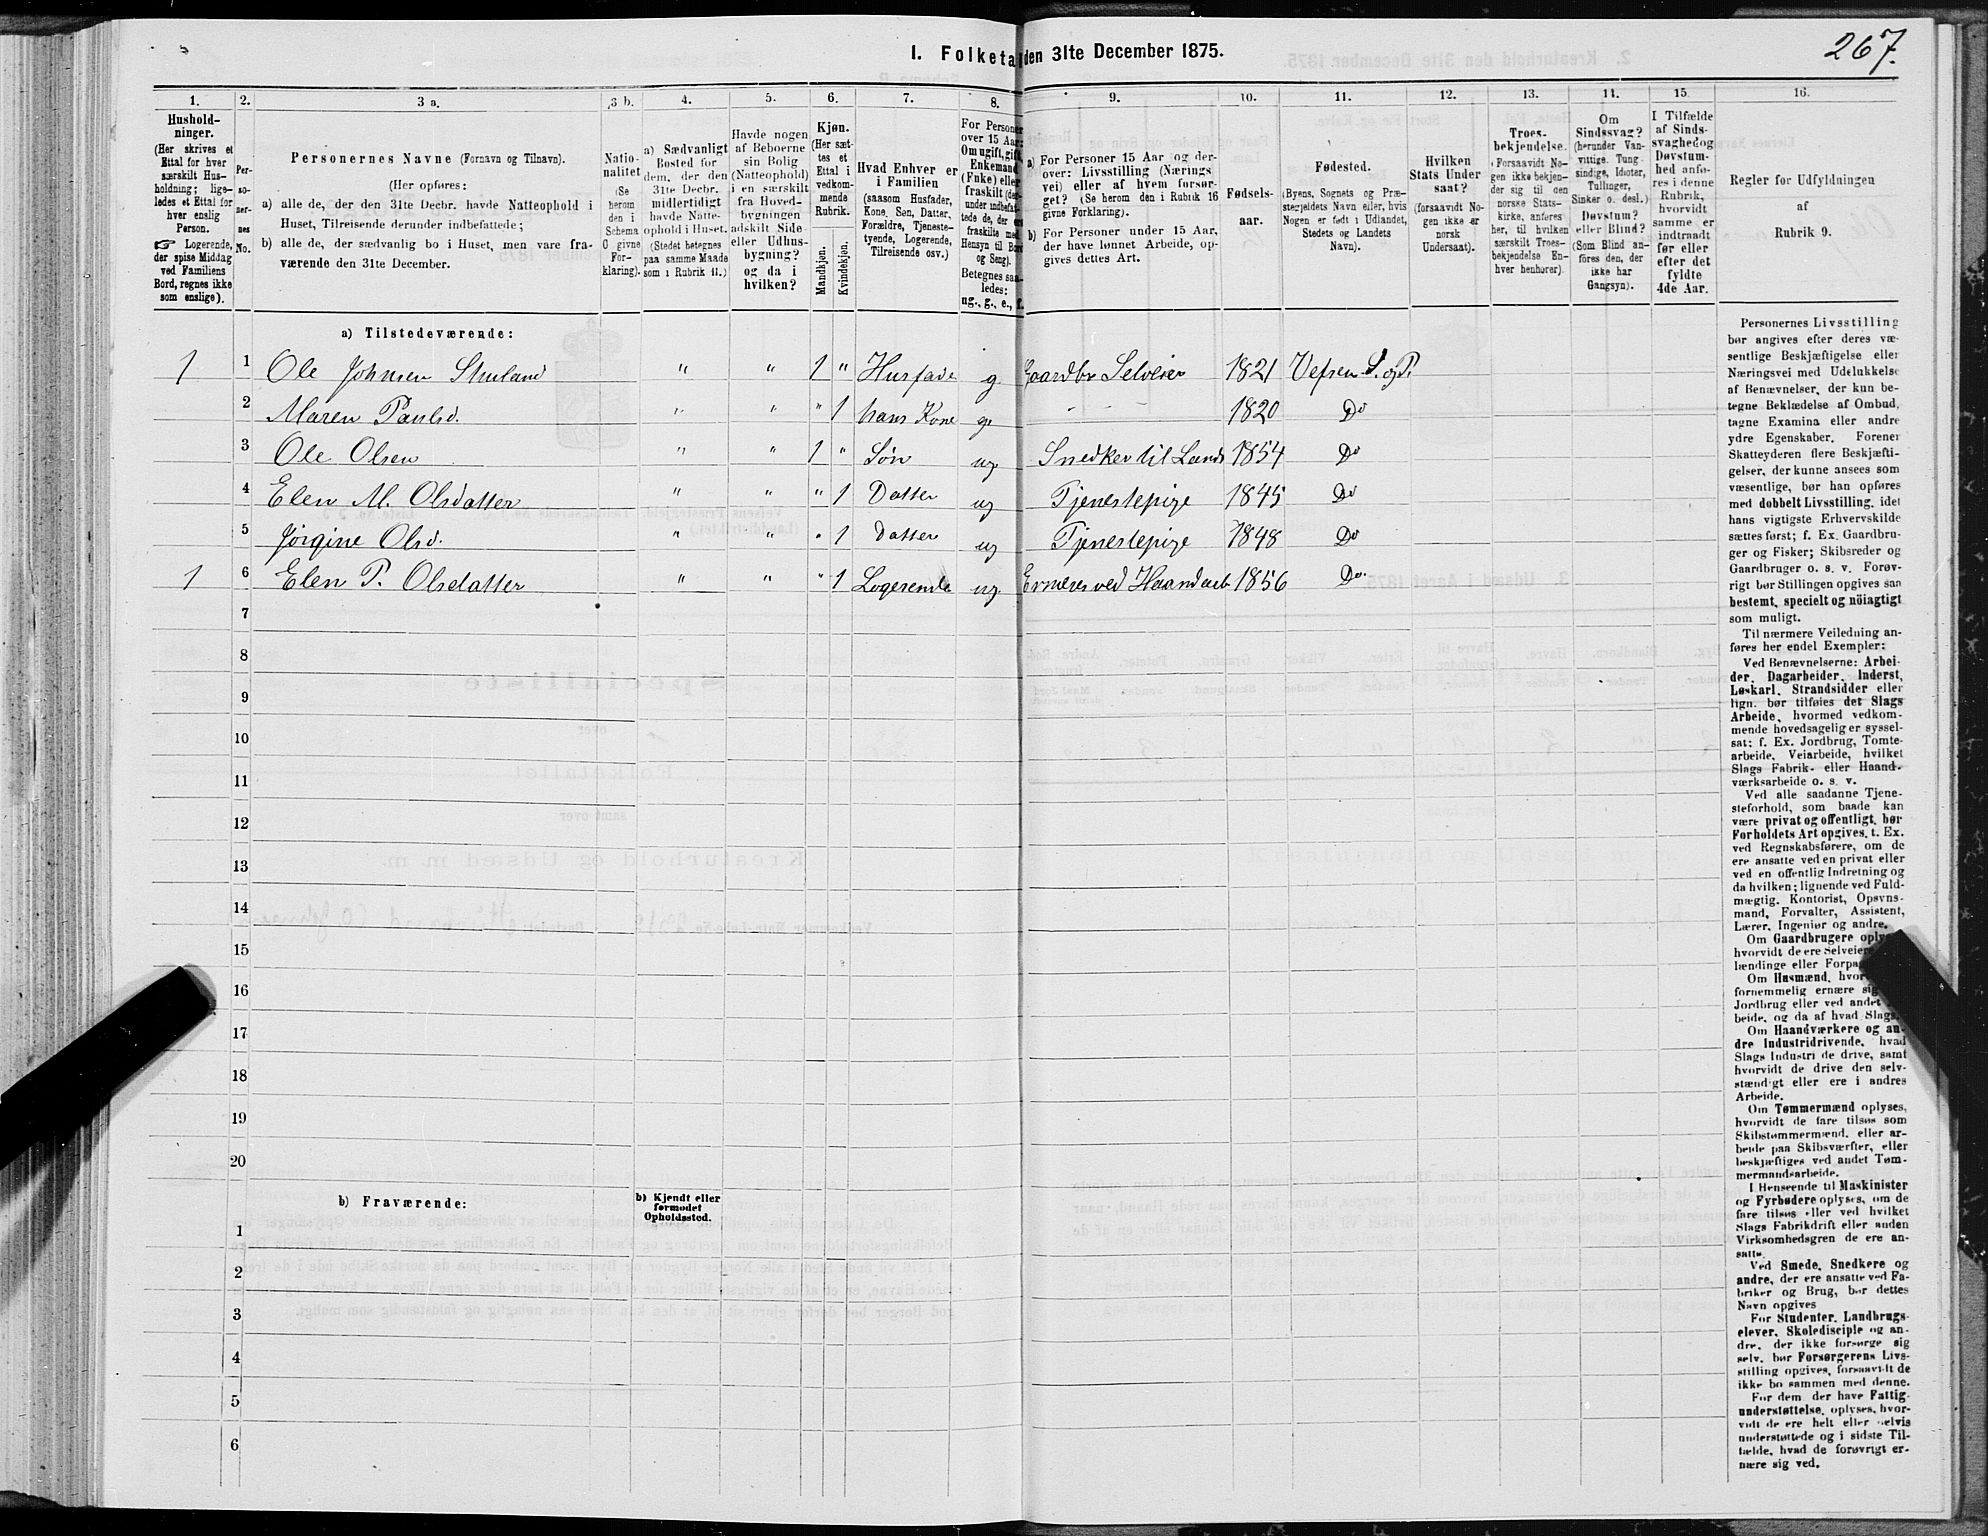 I. Folketal den 31te December 1875.
267.
1.
Hushold-
ninger.
(Her skrives et
Ettal for hver
særskilt Hus-
holdning; lige-
ledes et Ettal for
hver enslig
Person.
☞ Logerende,
der spise Middag
ved Familiens
Bord, regnes ikke
som enslige).
2.
Per-
so-
ner-
nes
No.
3 a.
Personernes Navne (Fornavn og Tilnavn).
(Her opføres:
a) alle de, der den 31te Decbr. havde Natteophold i
Huset, Tilreisende derunder indbefattede;
b) alle de, der sædvanlig bo i Huset, men vare fra-
værende den 31te December.
3 b.
Natio-
nalitet
(Se
herom
den i
Schema
O givne
For-
klaring).
4.
a) Sædvanligt
Bosted for
dem, der den
31te Decbr.
midlertidigt
havde Natte-
ophold i Huset.
(Stedet betegnes
paa samme Maade
som i Rubrik 11.)
5.
Havde nogen
af Beboerne
sin Bolig
(Natteophold)
i en særskilt
fra Hoved-
bygningen
adskilt Side-
eller Udhus-
bygning?
og da i
hvilken?
6.
Kjøn.
(Her sæt-
tes et
Ettal i
vedkom-
mende
Rubrik.
Mandkjøn.
Kvindekjøn.
7.
Hvad Enhver er
i Familien
(saasom Husfader,
Kone, Søn, Datter,
Forældre, Tjeneste-
tyende, Logerende,
Tilreisende osv.)
8.
For Personer
over 15 Aar:
Om ugift, gift,
Enkemand
(Enke) eller
fraskilt (der-
under indbefat-
tede de, der ere
fraskilte med
Hensyn til Bord
og Seng).
Betegnes saa-
ledes:
ug., g., e., f.
9.
a) For Personer 15 Aar og der-
over: Livsstilling (Nærings-
vei) eller af hvem forsør-
get? (Se herom den i Rubrik 16
givne Forklaring).
b) For Personer under 15 Aar,
der have lønnet Arbeide, op-
gives dettes Art.
10.
Fødsels-
aar.
11.
Fødested.
(Byens, Sognets og Præ-
stegjeldets Navn eller, hvis
Nogen er født i Udlandet,
Stedets og Landets
Navn).
12.
Hvilken
Stats Under
saat?
(forsaavidt No-
gen ikke er
norsk
Undersaat).
13.
Troes-
bekjendelse.
(Forsaavidt No-
gen ikke bekjen-
der sig til den
norske Stats-
kirke, anføres
her, til hvilken
særskilt Troes-
bekjendelse En-
hver henhører).
14.
Om
Sindssvag?
(herunder Van-
vittige, Tung-
sindige, Idioter,
Tullinger,
Sinker o. desl.)
Døvstum?
eller Blind?
(Som Blind an-
føres den, der
ikke har
Gangsyn).
15.
I Tilfælde
af Sinds-
svaghed og
Døvstum-
hed anfø-
res i denne
Rubrik,
hvorvidt
samme er
indtraadt
før eller
efter det
fyldte
4de Aar.
16.
Regler for Udfyldningen
af
Rubrik 9.
a) Tilstedeværende:
1 1 Ole Johnsen " " 1 " Husfader g. Gaardbr Selveier 1821 Vefsen S. og P.
2 Maren Paulsd. " " " 1 hans Kone g. - - 1820 Do
3 Ole Olsen " " 1 " Søn ug Snedker til Lands 1854 Do
4 Elen M. Olsdatter " " " 1 Datter ug Tjenestepige 1845 Do
5 Jørgine Olsd. " " " 1 Datter ug Tjenestepige 1848 Do
1 6 Elen P. Olsdatter " " " 1 Logerende ug. Ernæres ved Haandarb 1856 Do
7
8
9
10
11
12
13
14
15
16
17
18
19
20
b) Fraværende:
b) Kjendt eller
formodet
Opholdssted.
1
2
3
4
5
6
Personernes Livsstilling
bør angives efter deres væ-
sentlige Beskjæftigelse eller
Næringsvei med Udelukkelse
af Benævnelser, der kun be-
tegne Beklædelse af Ombud,
tagne Examina eller andre
ydre Egenskaber. Forener
Skatteyderen flere Beskjæfti-
gelser, der kunne ansees som
væsentlige, bør han opføres
med dobbelt Livsstilling, idet
hans vigtigste Erhvervskilde
sættes først; f. Ex. Gaardbru-
ger og Fisker; Skibsreder og
Gaardbruger o. s. v. Forøv-
rigt bør Stillingen opgives saa
bestemt, specielt og nöiagtigt
som muligt.
Til nærmere Veiledning an-
føres her endel Exempler:
Ved Benævnelserne: Arbei-
der, Dagarbeider, Inderst,
Løskarl, Strandsidder eller
lign. bør tilføies det Slags
Arbeide, hvormed vedkom-
mende hovedsagelig er syssel-
sat; f. Ex. Jordbrug, Tomte-
arbeide, Veiarbeide, hvilket
Slags Fabrik- eller Haand-
værksarbeide o. s. v.
Ved alle saadanne Tjene-
steforhold, som baade kan
være privat og offentligt, bør
Forholdets Art opgives, t. Ex.
ved Regnskabsførere, om de
ere ansatte ved en privat eller
ved en offentlig Indretning og
da hvilken; lignende ved Fuld-
mægtig, Kontorist, Opsyns-
mand, Forvalter, Assistent,
Lærer, Ingeniør og andre.
Om Gaardbrugere oplyses,
hvorvidt de ere Selveiere,
lændinge eller Forpagtere.
Om Husmænd, hvorvidt de
fornemmelig ernære sig ved
Jordbrug eller ved andet Ar-
beide, og da af hvad Slags.
Om Haandværkere og an-
dre Industridrivende, hvad
Slags Industri de drive, samt
hvorvidt de drive den selv-
stændigt eller ere i andres
Arbeide.
Om Tømmermænd oplyses,
hvorvidt de fare tilsøs som
Skibstømmermænd, eller ar-
beide paa Skibsværfter, eller
beskjæftiges ved andet Tøm-
mermandsarbeide.
I Henseende til Maskinister
og Fyrbødere oplyses, om de
fare tilsøs eller ved hvilket
Slags Fabrikdrift eller anden
Virksomhedsgren de ere an-
satte.
Ved Smede, Snedkere og
andre, der ere ansatte ved Fa-
briker og Brug, bør dettes
Navn opgives
For Studenter, Landbrugs-
elever, Skoledisciple og an-
dre, der ikke forsørge sig
selv, bør Forsørgerens Livs-
stilling opgives, forsaavidt de
ikke bo sammen med denne.
For dem, der have Fattig-
understøttelse, oplyses, hvor-
vidt de ere helt eller delvis
understøttede og i sidste Til-
fælde, hvad de forøvrigt er-
nære sig ved.